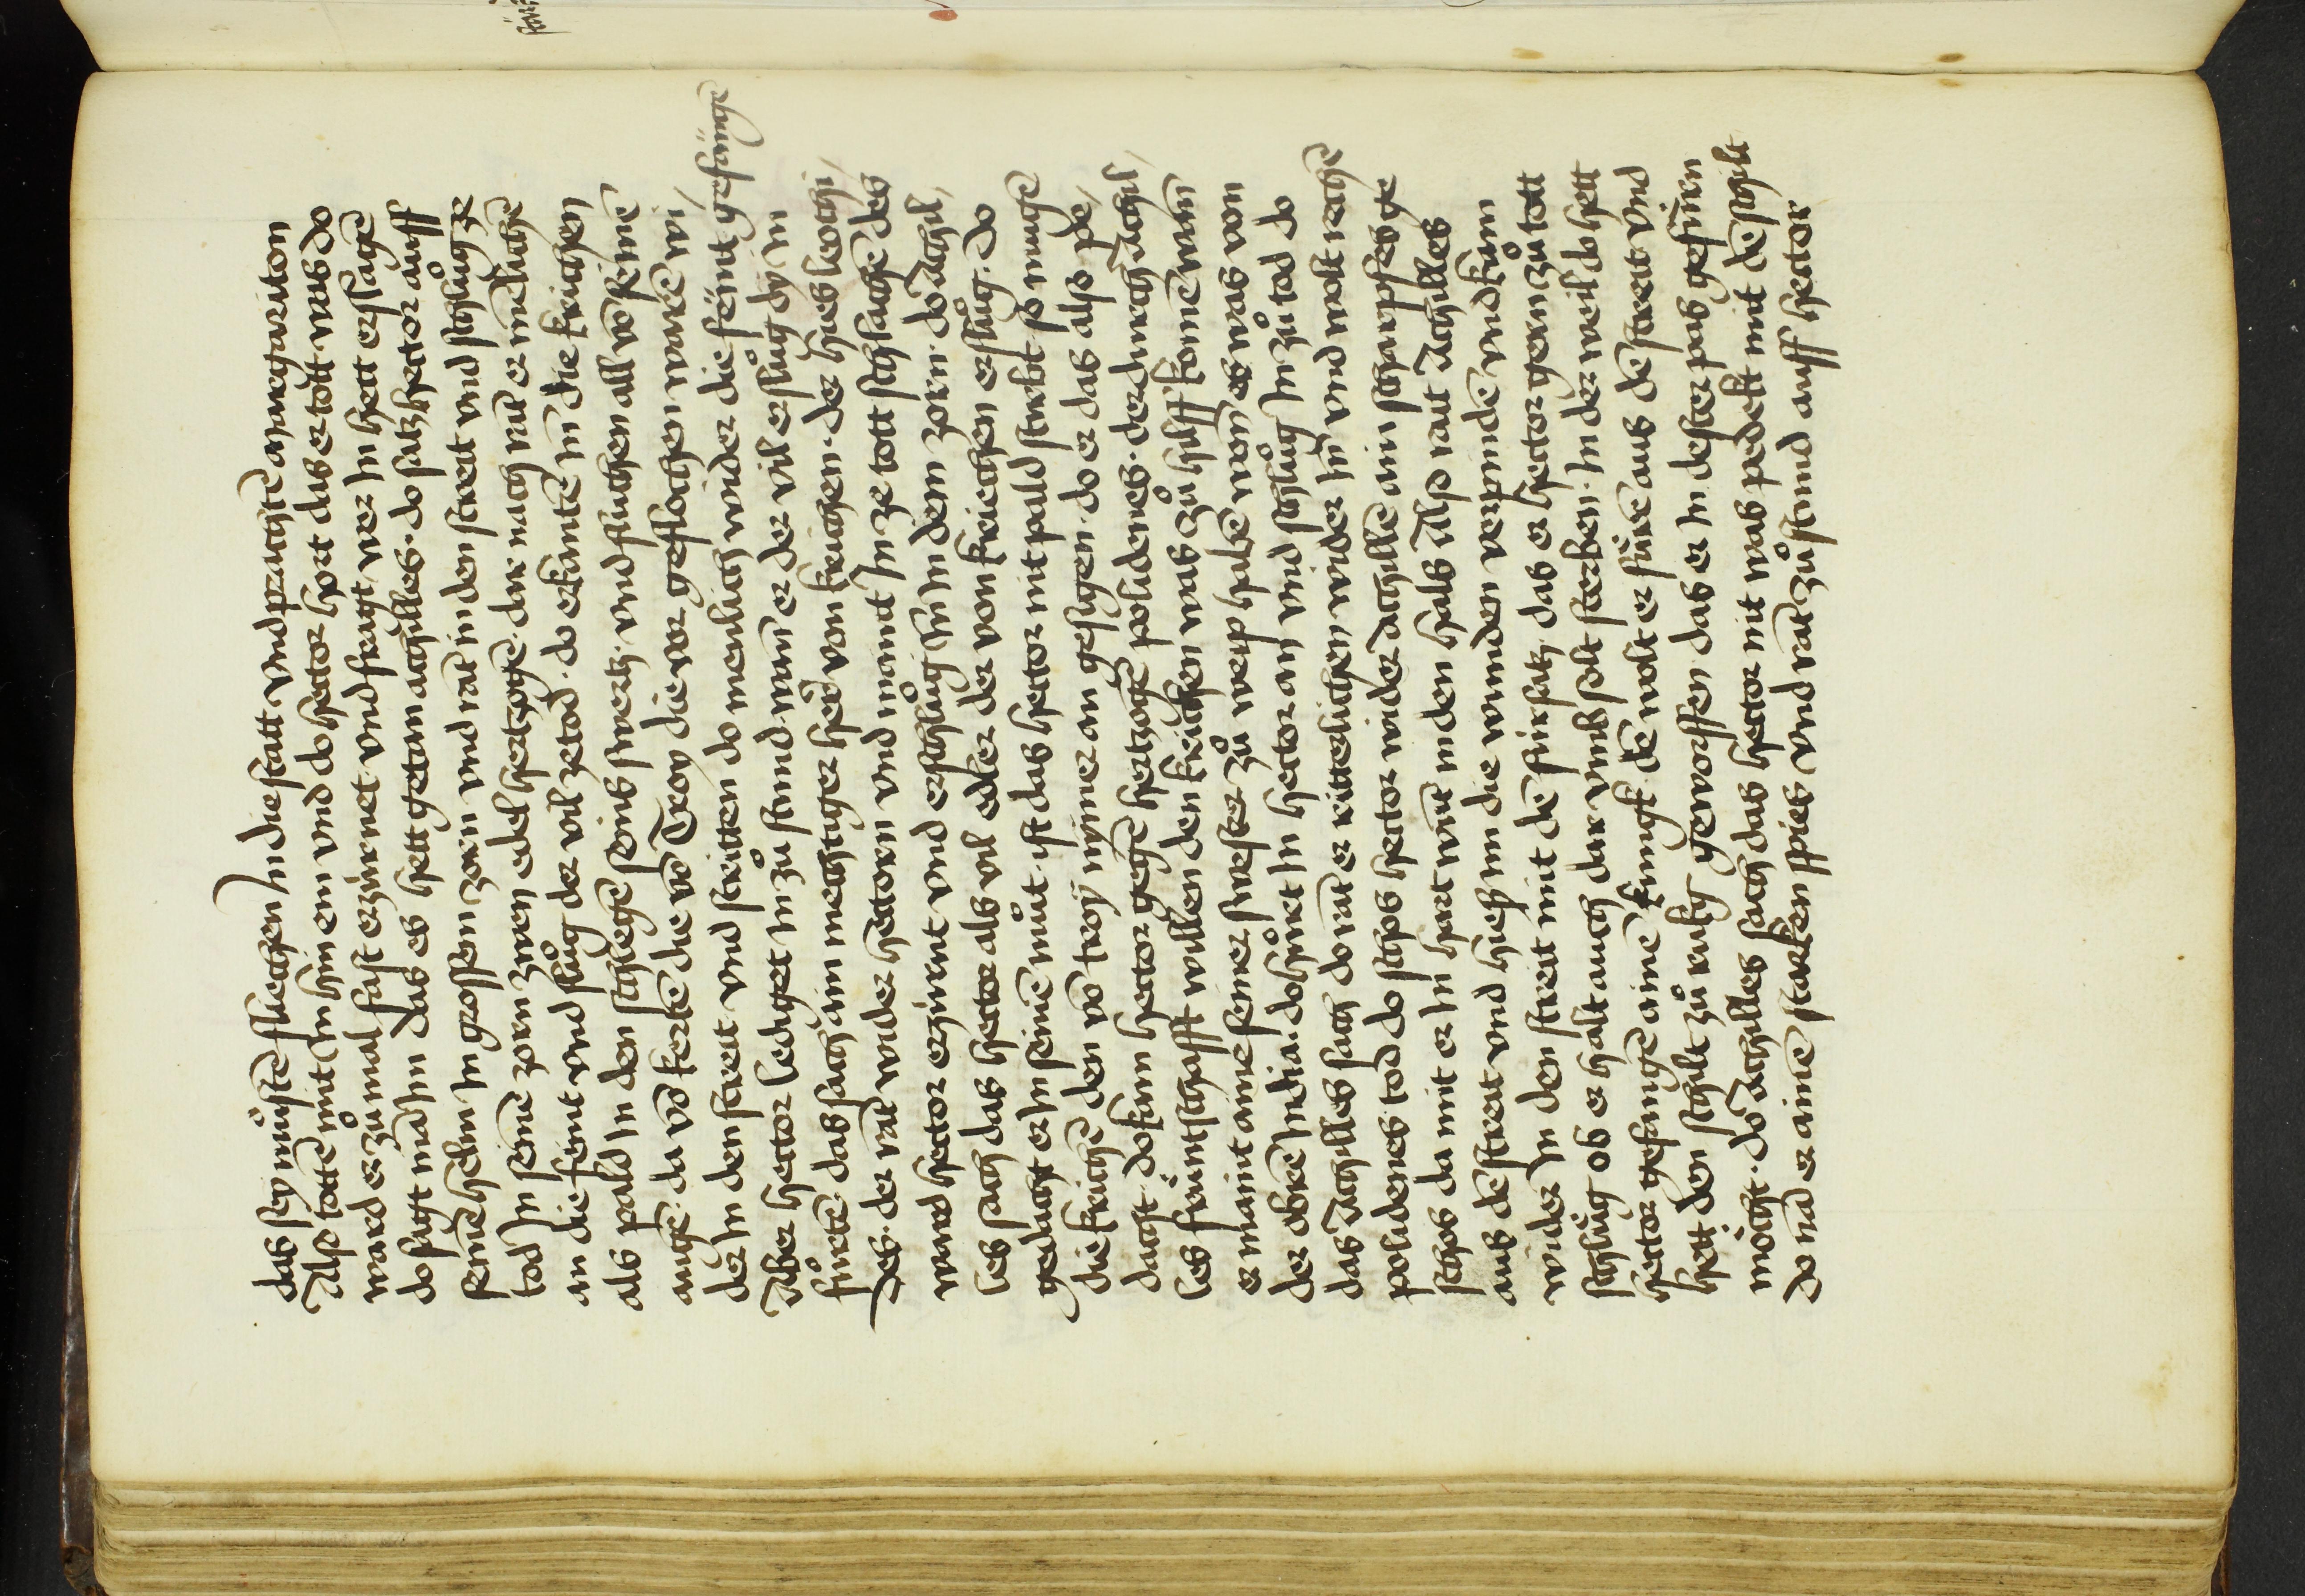 das sy müsstē fliechen In die statt vnd prachtē amegariton
Also tottē mit In hin em vnd do hector hort das er tott was do
ward er zů mal fast erzürnet vnd fragt wer In hett erslagē
do sagt mā Im das es hett getan achilles · do satz hector auff
seinē helm In grossem zoren vnd rait in den streit vnd schlůg ze
tod In seinē zorn zwen edel hertzogē · dar nach rait er mēlichē
an die feint vnd slůg der vil ze tod · do erkantē In die kriechen
als pald In den schlegē seins swertz · vnd fluchen all vō seinē
augē · da vō kertē die vō Troy die vor geflochen warē wi/
der In den streit vnd stritten do menlich wider die feint gefangē
Aber hector lediget In zů stund wann er der vil erslůg dy In
fürtē · das sach ain mechtiger her vō kriechen · der hies leochi/
des · der rait wider hectorn vnd maint In ze tott schlachē des
ward hector erzürnt vnd erschlůg In In dem zorn · do Achil/
les sach das hector als vil edler der von kriechen erslůg · do
gedacht er In seinē můt ist das hector nit pald stirbt so mugē
die kriechē den vō troy nymer an gesigen · do er das also pe/
dacht · do kam hector gegē hertzogē polidenes · der durch Achil/
les früntschafft willen den kriechen was zů hilff komē wann
er maint aine seiner swester zů weip habē wonn es was von
der obrē India · do hiuet In hector an vnd schlůg In zů tod do
das Achilles sach do rait er ritterlichen wider In vnd wolt rechē
polidenes tod do schos hector wider achillē ain scharpfes ge
schos da mit er In hart wūt in den hals Also rait Achilles
aus dē streit vnd hiesz im die wunden verpindē vnd kam
wider In den streit mit dē fürsatz das er hector gern zů tott
schlůg ob er halt auch dar vmb solt sterben · In der weil do hett
hector gefangē ainē kunigk dē wolt er fürē aus dē streit vnd
hett den schilt zů ruck geworffen das er In dester pas gefüren
möcht · do Achilles sach das hector nit was pedekt mit dē schilt
do nā er ainē starken spies vnd rait zů stund auff hector